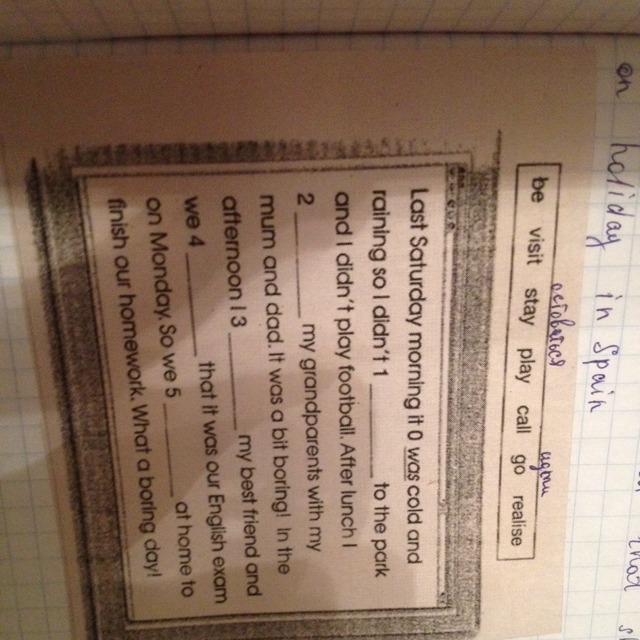 on holiday in Spain
be visit stay play call go realise
Last Saturday morning it 0 was cold and
raining so I didn't 1 ________ to the park
and I didn't play football. After lunch I
2 ________ my grandparents with my
mum and dad. It was a bit boring! In the
afternoon I 3 ________ my best friend and
we 4 ________ that it was our English exam
on Monday. So we 5 ________ at home to
finish our homework. What a boring day!